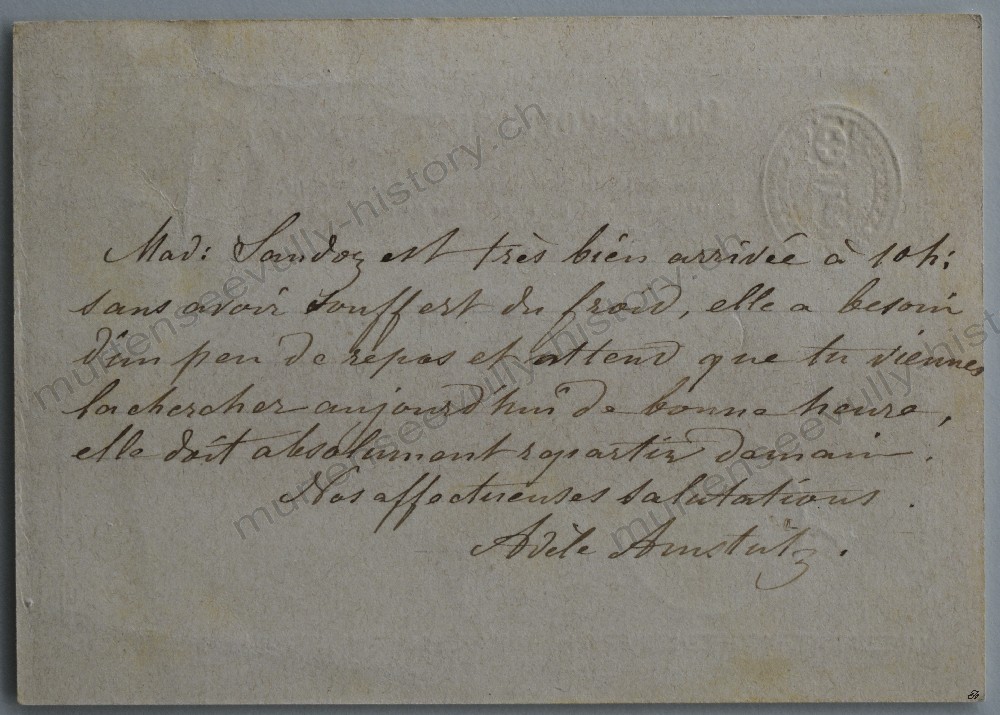 Mad: Sandoz est très bien arrivée à 10h:
sans avoir souffert du froid, elle a besoin
d'un peu de repos et attend que tu viennes
la chercher aujourd'hui de bonne heure,
elle doit absolument repartir demain.
Nos affectueuses salutations.
Adèle Amstutz.
murtenseevully-history.ch
murtenseevully-history.ch
murtenseevully-history.ch